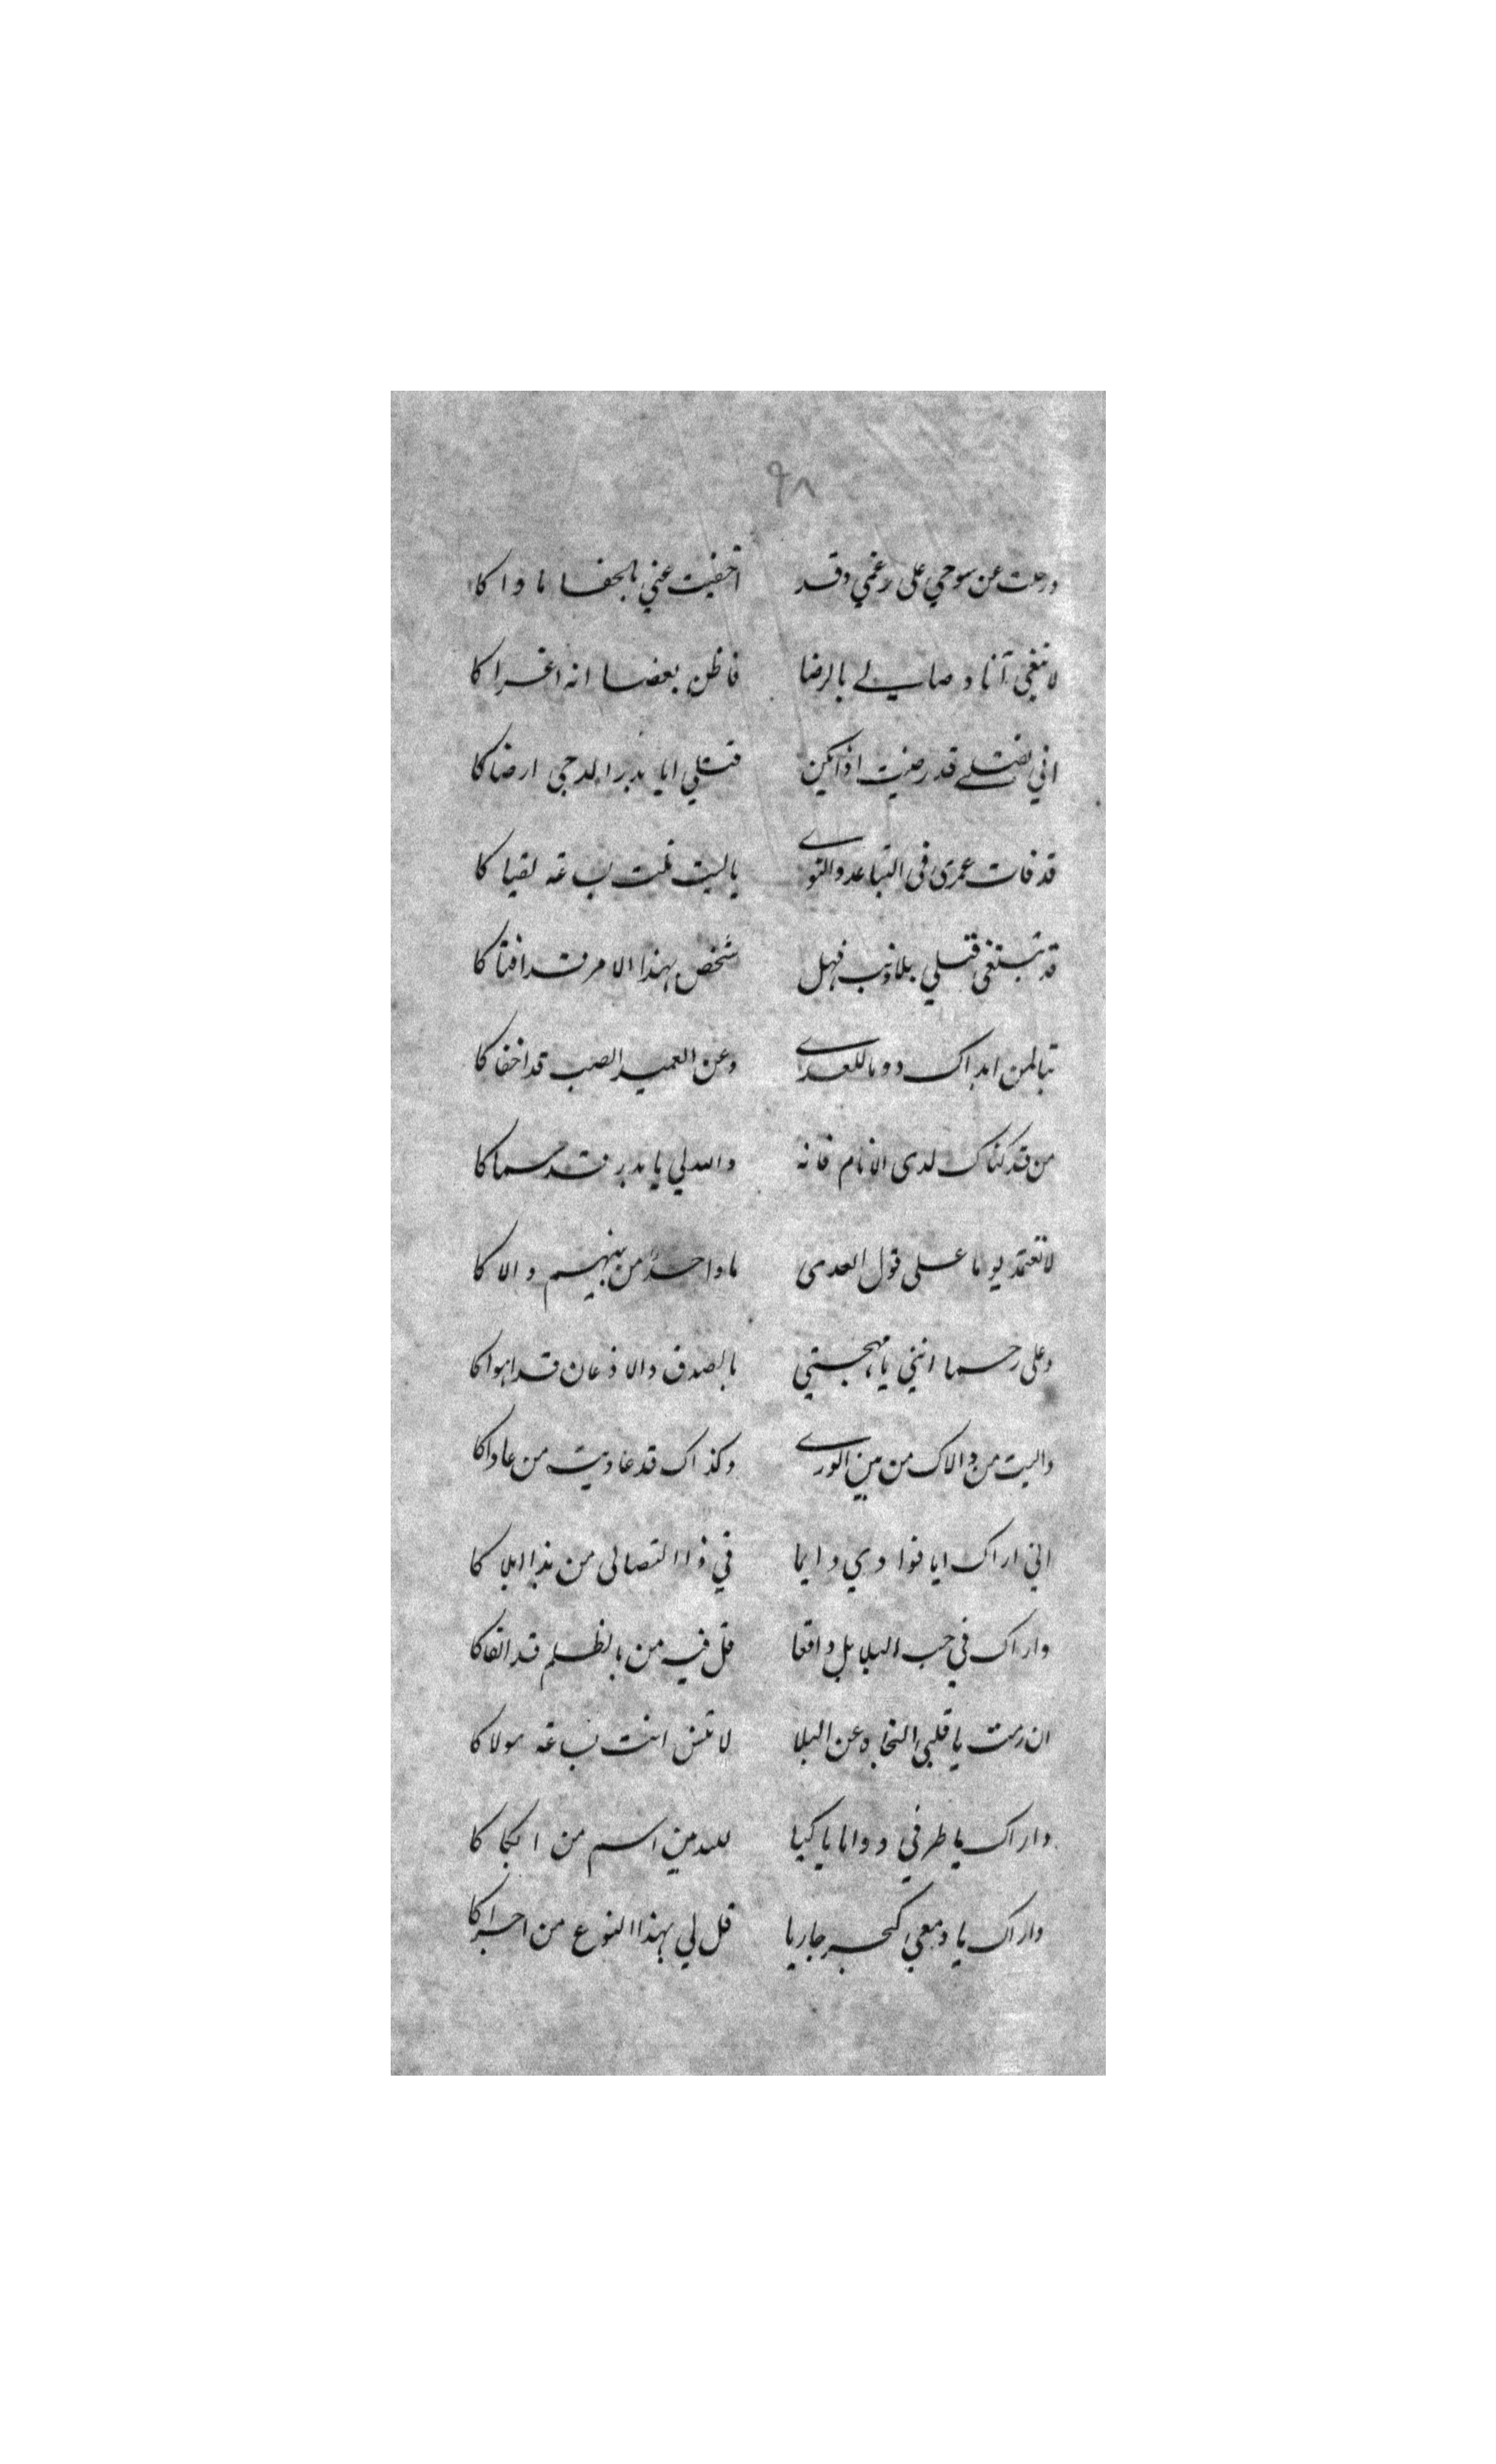 ٩٨
ورحلت عن سوحي على رغمي وقد اخفيت عني بالجفا ماواكا
لا تبغي آنا وصالي لي بالرضا فاظن بعضا انه اغراكا
اني بقتلي قد رضيت اذا يكن قتلي ايا بدر الدجى ارضاكا
قد فات عمرى فى التباعد والنوے ياليت نلت بساعة لقياكا
قد تبتغي قتلي بلا ذنب فهل شخص بهذا الامر قد افتاكا
تبا لمن ابداك دوما للعدے وعن العميد الصب قد اخفاكا
من قد كناك لدى الانام فانه والله لي يا بدر قد سماكا
لا تعتمد يوما على قول العدى ما واحدٌ من بينهم والاكا
وعلى رحما اننى يا مهجتي بالصدق والاذعان قد اهواكا
واليت من والاك من بين الورے وكذاك قد عاديت من عاداكا
انى اراك ايا فوادي دايما في ذا التصالى من بذا ابلاكا
واراك في جب البلابل واقعا قل فيه من بالظلم قد القاكا
ان رمت يا قلبى النجاه عن البلا لا تنس انت بساعة مولاكا
واراك يا طرفي دواما باكيا لله بين اسم من ابكاكا
واراك يا دمعي كبحر جاريا قل لي بهذا النوع من اجراكا